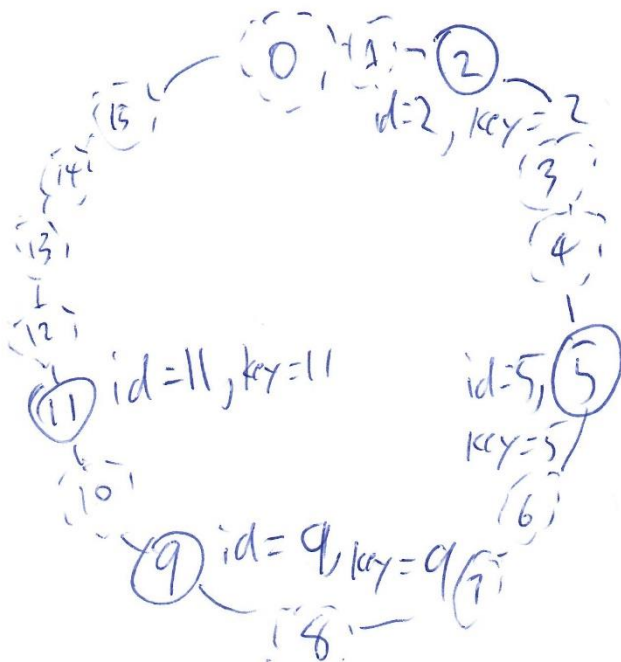 0
1
2
id=2, key=2
3
4
5
id=5,
key=5
6
7
8
9
id=9, key=9
10
11
id=11, key=11
12
13
14
15